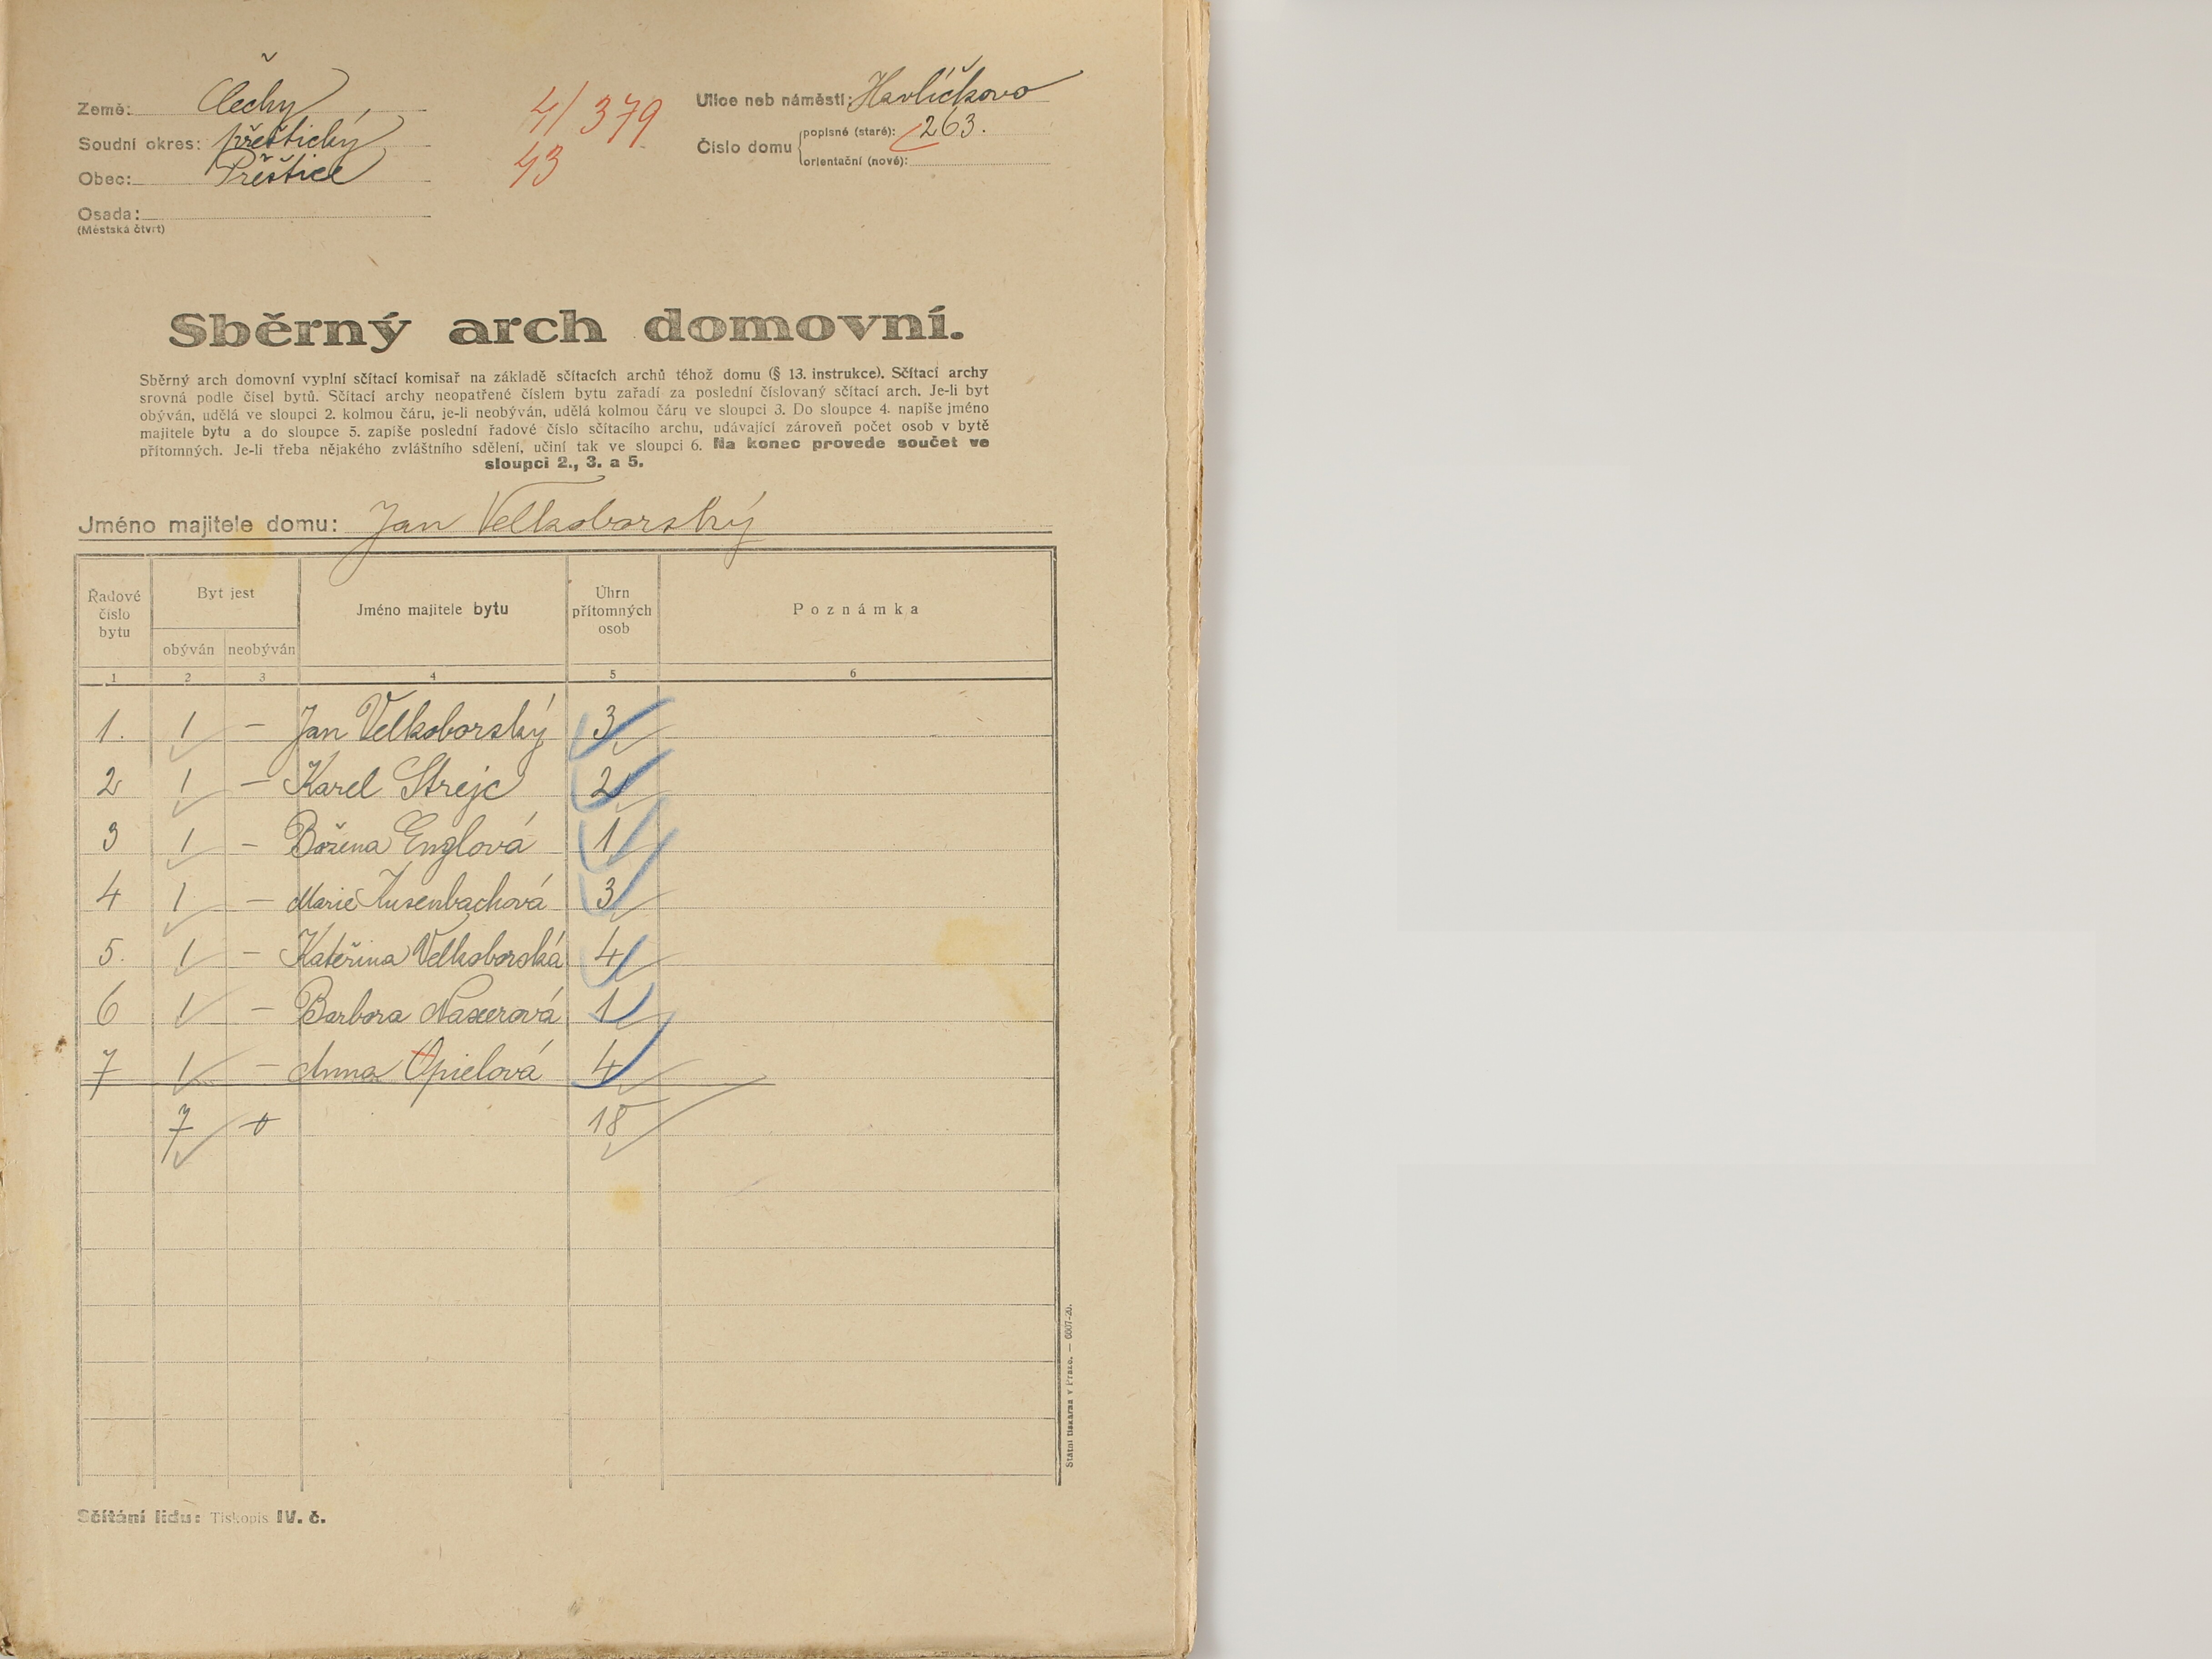 Země: Čechy
Soudní okres: přeštický
Obec: Přeštice
Osada:
(Městská čtvrť)
4/379
43
Ulice neb náměstí: Havlíčkova
Číslo domu
popisné (staré): 263.
orientační (nové):
Sběrný arch domovní.
Sběrný arch domovní vyplní sčítací komisař na základě sčítacích archů téhož domu (§ 13. instrukce). Sčítací archy
srovná podle čísel bytů. Sčítací archy neopatřené číslem bytu zařadí za poslední číslovaný sčítací arch. Je-li byt
obýván, udělá ve sloupci 2. kolmou čáru, je-li neobýván, udělá kolmou čáru ve sloupci 3. Do sloupce 4. napíše jméno
majitele bytu a do sloupce 5. zapíše poslední řadové číslo sčítacího archu, udávající zároveň počet osob v bytě
přítomných. Je-li třeba nějakého zvláštního sdělení, učiní tak ve sloupci 6. Na konec provede součet ve
sloupci 2., 3. a 5.
Jméno majitele domu: Jan Velkoborský
Řadové číslo bytu
Byt jest
obýván neobýván
Jméno majitele bytu
Úhrn přítomných osob
Poznámka
1 2 3 4 5 6
1. 1 – Jan Velkoborský 3
2 1 – Karel Strejc 2
3 1 – Božena Englová 1
4 1 – Marie 3
5. 1 – Kateřina Velkoborská 4
6 1 – Barbora Naxerová 1
7 1 – Anna Opielová 4
7 0 18
Státní tiskárna v Praze. — 6007-20.
Sčítání lidu: Tiskopis IV. č.